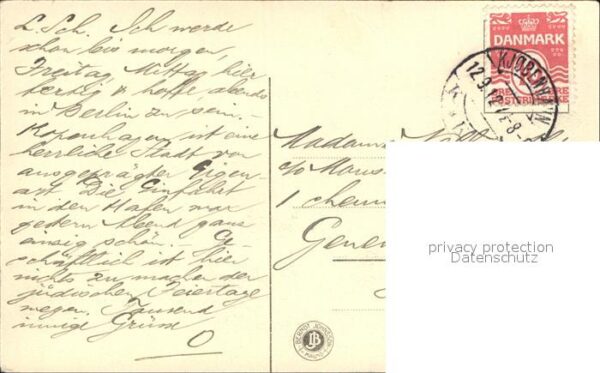 L. Sch. Ich werde
schon bis morgen,
Freitag Mittag hier
fertig & hoffe, abends
in Berlin zu sein.-
Kopenhagen ist eine
herrliche Stadt von
ausgeprägter Eigen-
art. Die Einfahrt
in den Hafen war
gestern Abend ganz
einzig schön. - Ge-
schäftlich ist hier
nichts zu machen der
jüdischen Feiertage
wegen. Tausend
innige Grüsse
O
DANMARK
KJØBENHAVN
12.9.12
Madame
c/o
1 chemin
Genev
privacy protection
Datenschutz